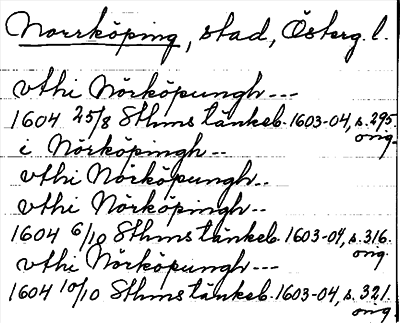 Norrköping, stad, Österg. l.
vthi Nörköpungh---
1604 25/8 Sthms tänkeb. 1603-04, s. 295.
orig.
i Nörköpingh--
vthi Nörköpungh..
vthi Nörköpingh--
1604 6/10 Sthms tänkeb. 1603-04, s. 316.
orig.
vthi Nörköpingh---
1604 10/10 Sthms tänkeb. 1603-04, s. 321.
orig.